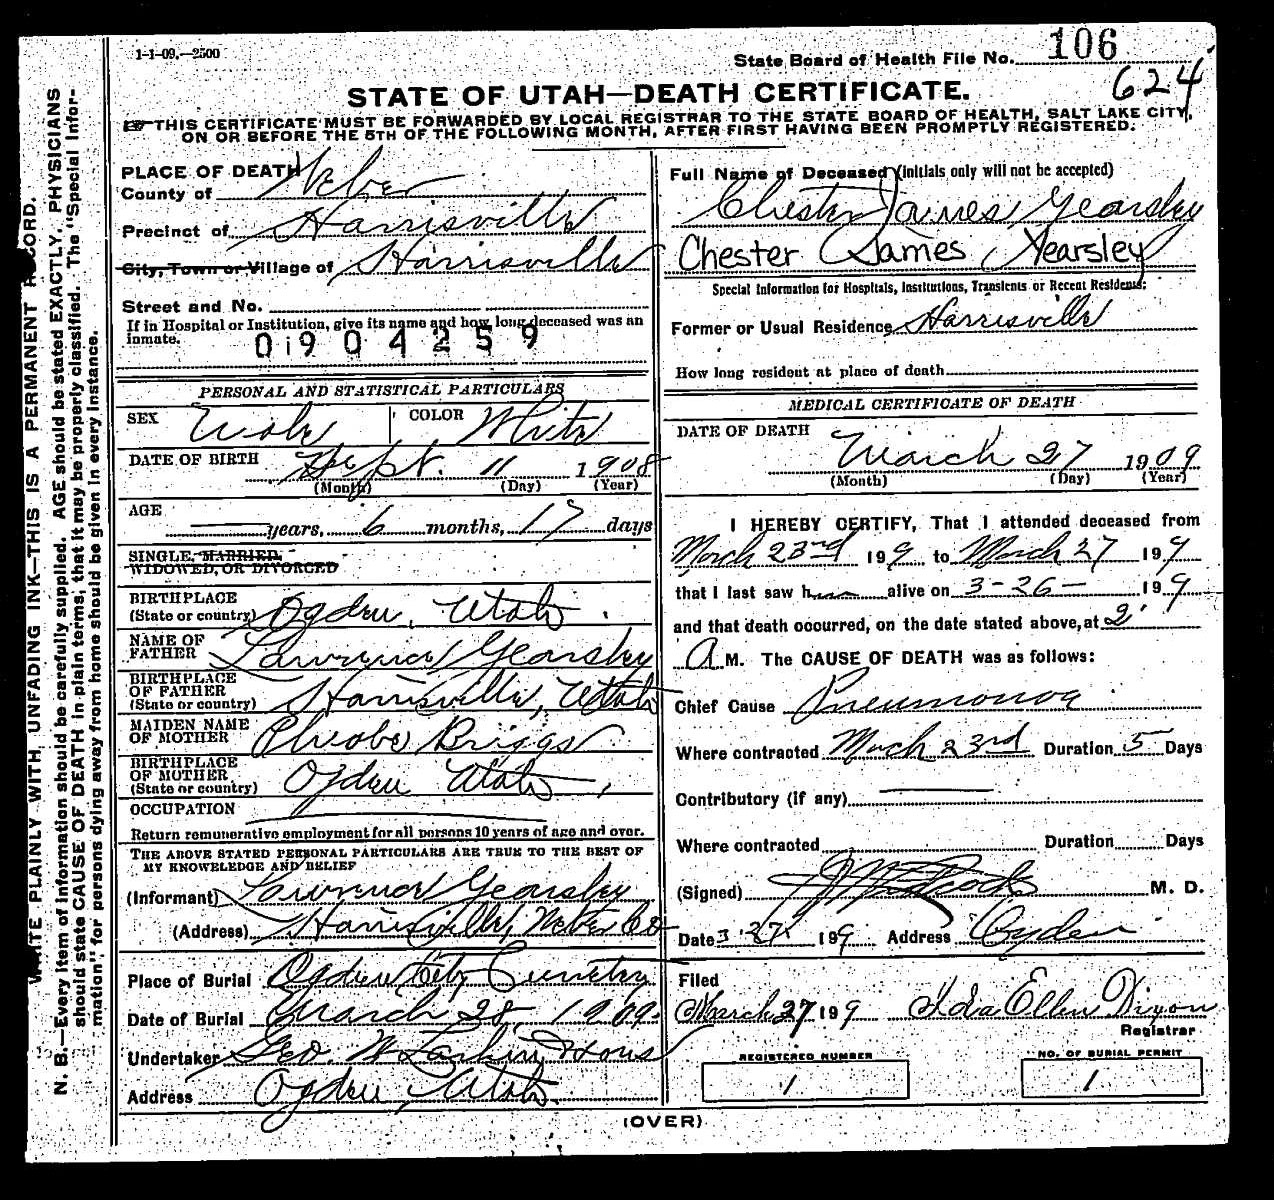 1-1-09.—2500
State Board of Health File No. 106
624
STATE OF UTAH—DEATH CERTIFICATE.
THIS CERTIFICATE MUST BE FORWARDED BY LOCAL REGISTRAR TO THE STATE BOARD OF HEALTH, SALT LAKE CITY,
ON OR BEFORE THE 5TH OF THE FOLLOWING MONTH, AFTER FIRST HAVING BEEN PROMPTLY REGISTERED.
WRITE PLAINLY WITH UNFADING INK—THIS IS A PERMANENT RECORD.
N. B.—Every item of information should be carefully supplied. AGE should be stated EXACTLY. PHYSICIANS
should state CAUSE OF DEATH in plain terms, that it may be properly classified. The "Special Infor-
mation" for persons dying away from home should be given in every instance.
PLACE OF DEATH
County of Weber
Precinct of Harrisville
City, Town or Village of Harrisville
Street and No.
If in Hospital or Institution, give its name and how long deceased was an
inmate.
0904259
PERSONAL AND STATISTICAL PARTICULARS
SEX Male COLOR White
DATE OF BIRTH Sept. 11 1908
(Month) (Day) (Year)
AGE
years, 6 months, 17 days
SINGLE, MARRIED,
WIDOWED, OR DIVORCED
BIRTHPLACE
(State or country) Ogden, Utah.
NAME OF
FATHER Lawrence Yearsley
BIRTHPLACE
OF FATHER
(State or country) Harrisville, Utah
MAIDEN NAME
OF MOTHER Pheobe Briggs
BIRTHPLACE
OF MOTHER
(State or country) Ogden Utah,
OCCUPATION
Return remunerative employment for all persons 10 years of age and over.
THE ABOVE STATED PERSONAL PARTICULARS ARE TRUE TO THE BEST OF
MY KNOWLEDGE AND BELIEF
(Informant) Lawrence Yearsley
(Address) Harrisville, Weber Co
Place of Burial Ogden City Cemetry
Date of Burial March 28, 1909.
Undertaker Geo. W Larkin & Sons
Address Ogden, Utah.
Full Name of Deceased (initials only will not be accepted)
Chester James Yearsley
Chester James Yearsley
Special Information for Hospitals, Institutions, Transients or Recent Residents:
Former or Usual Residence Harrisville
How long resident at place of death
MEDICAL CERTIFICATE OF DEATH
DATE OF DEATH
March 27 1909
(Month) (Day) (Year)
I HEREBY CERTIFY, That I attended deceased from
March 23rd 199 to March 27 199
that I last saw him alive on 3-26- 199
and that death occurred, on the date stated above, at 2
A M. The CAUSE OF DEATH was as follows:
Chief Cause Pneumonia
Where contracted March 23rd Duration 5 Days
Contributory (if any)
Where contracted Duration Days
(Signed) M. D.
Date 3 27 199 Address Ogden
Filed
March 27 199 Ida Ellen Dixon
Registrar
REGISTERED NUMBER
1
NO. OF BURIAL PERMIT
1
(OVER)